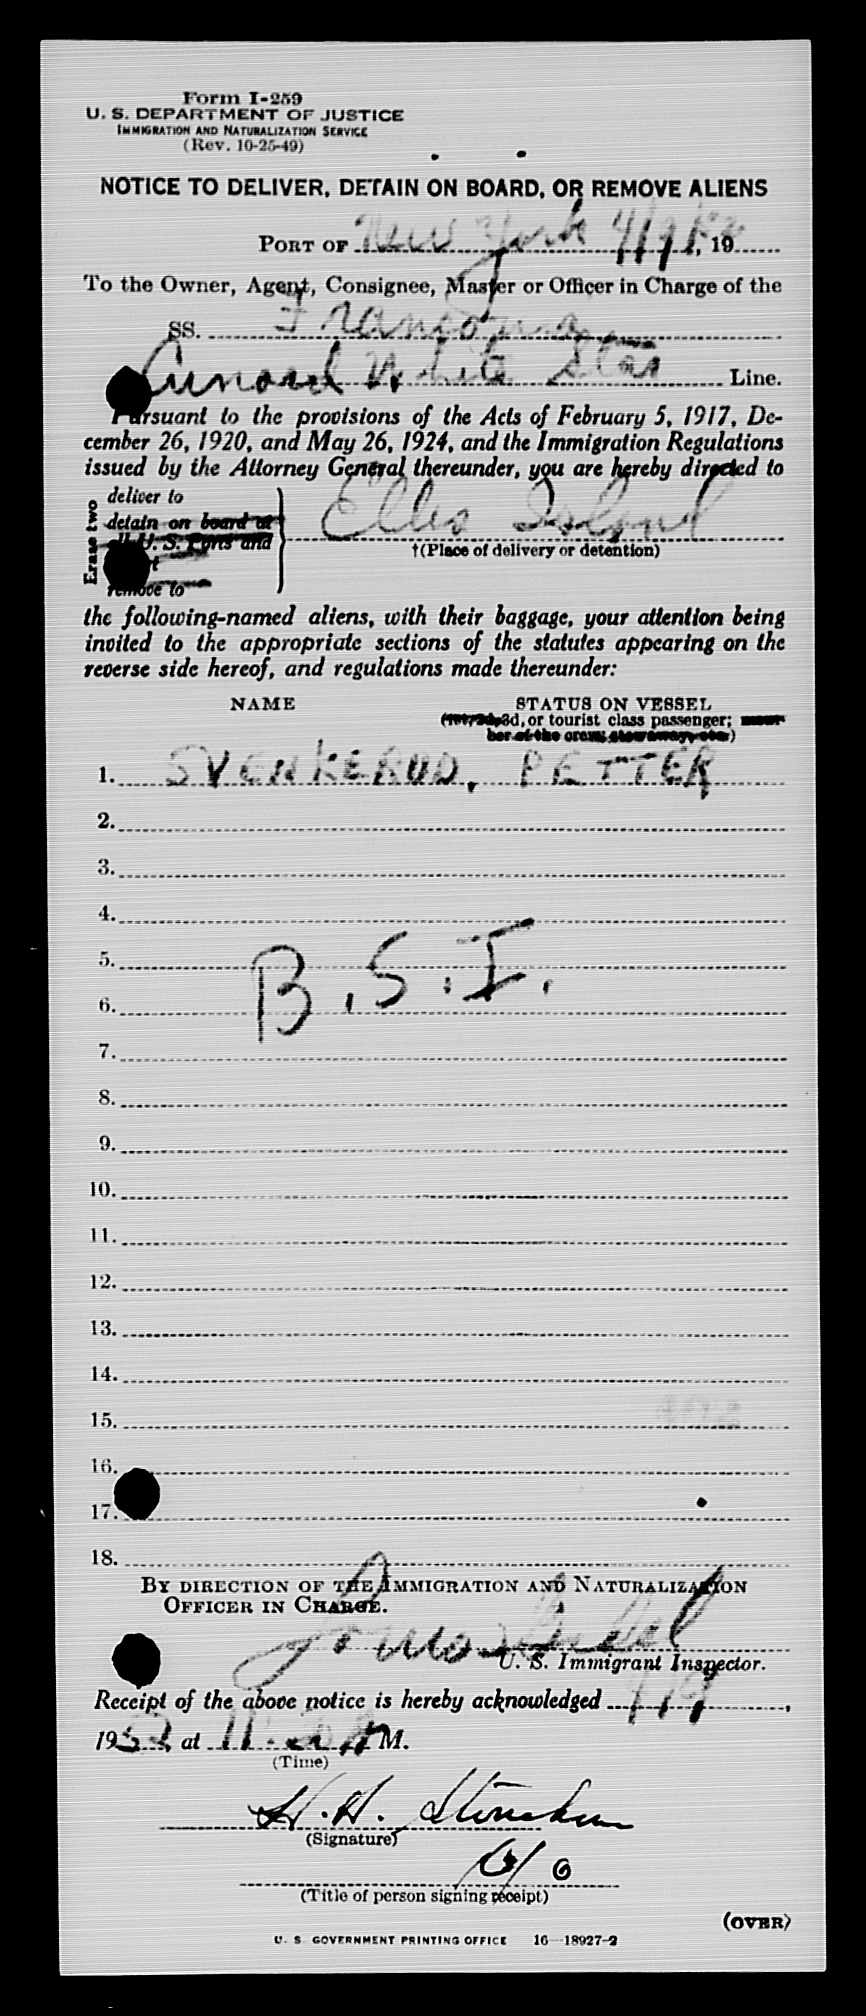 Form I-259
U. S. DEPARTMENT OF JUSTICE
IMMIGRATION AND NATURALIZATION SERVICE
(Rev. 10-25-49)
NOTICE TO DELIVER, DETAIN ON BOARD, OR REMOVE ALIENS
PORT OF New York 4/9/52, 19
To the Owner, Agent, Consignee, Master or Officer in Charge of the
SS. Franconia
Cunard White Star Line.
Pursuant to the provisions of the Acts of February 5, 1917, De-
cember 26, 1920, and May 26, 1924, and the Immigration Regulations
issued by the Attorney General thereunder, you are hereby directed to
Erase two
deliver to
detain on board at
all U. S. Ports and
remove to
Ellis Island
†(Place of delivery or detention)
the following-named aliens, with their baggage, your attention being
invited to the appropriate sections of the statutes appearing on the
reverse side hereof, and regulations made thereunder:
NAME STATUS ON VESSEL
3d, or tourist class passenger;
ber of the crew, stowaway, etc.)
1. SVENKERUD, PETTER
2.
3.
4.
5.
B.S.I.
6.
7.
8.
9.
10.
11.
12.
13.
14.
15.
16.
17.
18.
BY DIRECTION OF THE IMMIGRATION AND NATURALIZATION
OFFICER IN CHARGE.
U. S. Immigrant Inspector.
Receipt of the above notice is hereby acknowledged 4/9,
1952, at M.
(Time)
H. H.
(Signature)
(Title of person signing receipt)
(OVER)
U. S. GOVERNMENT PRINTING OFFICE 16—18927-2